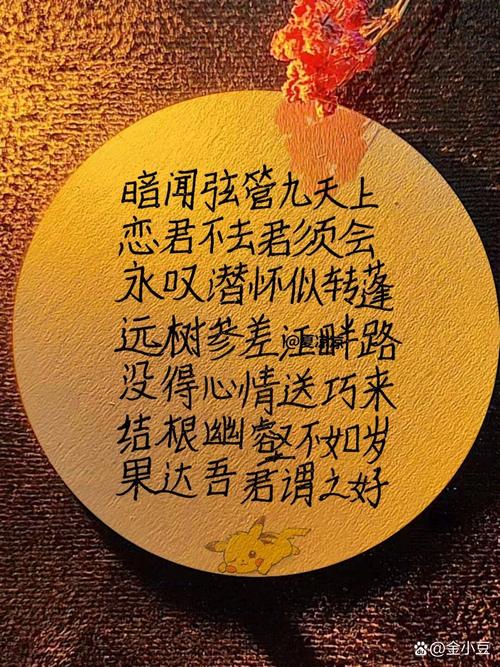 暗闻弦管九天上
恋君不去君须会
永叹潜怀似转蓬
远树参差江畔路
没得心情送巧来
结根幽壑不如岁
果达吾君谓之好
@金小豆